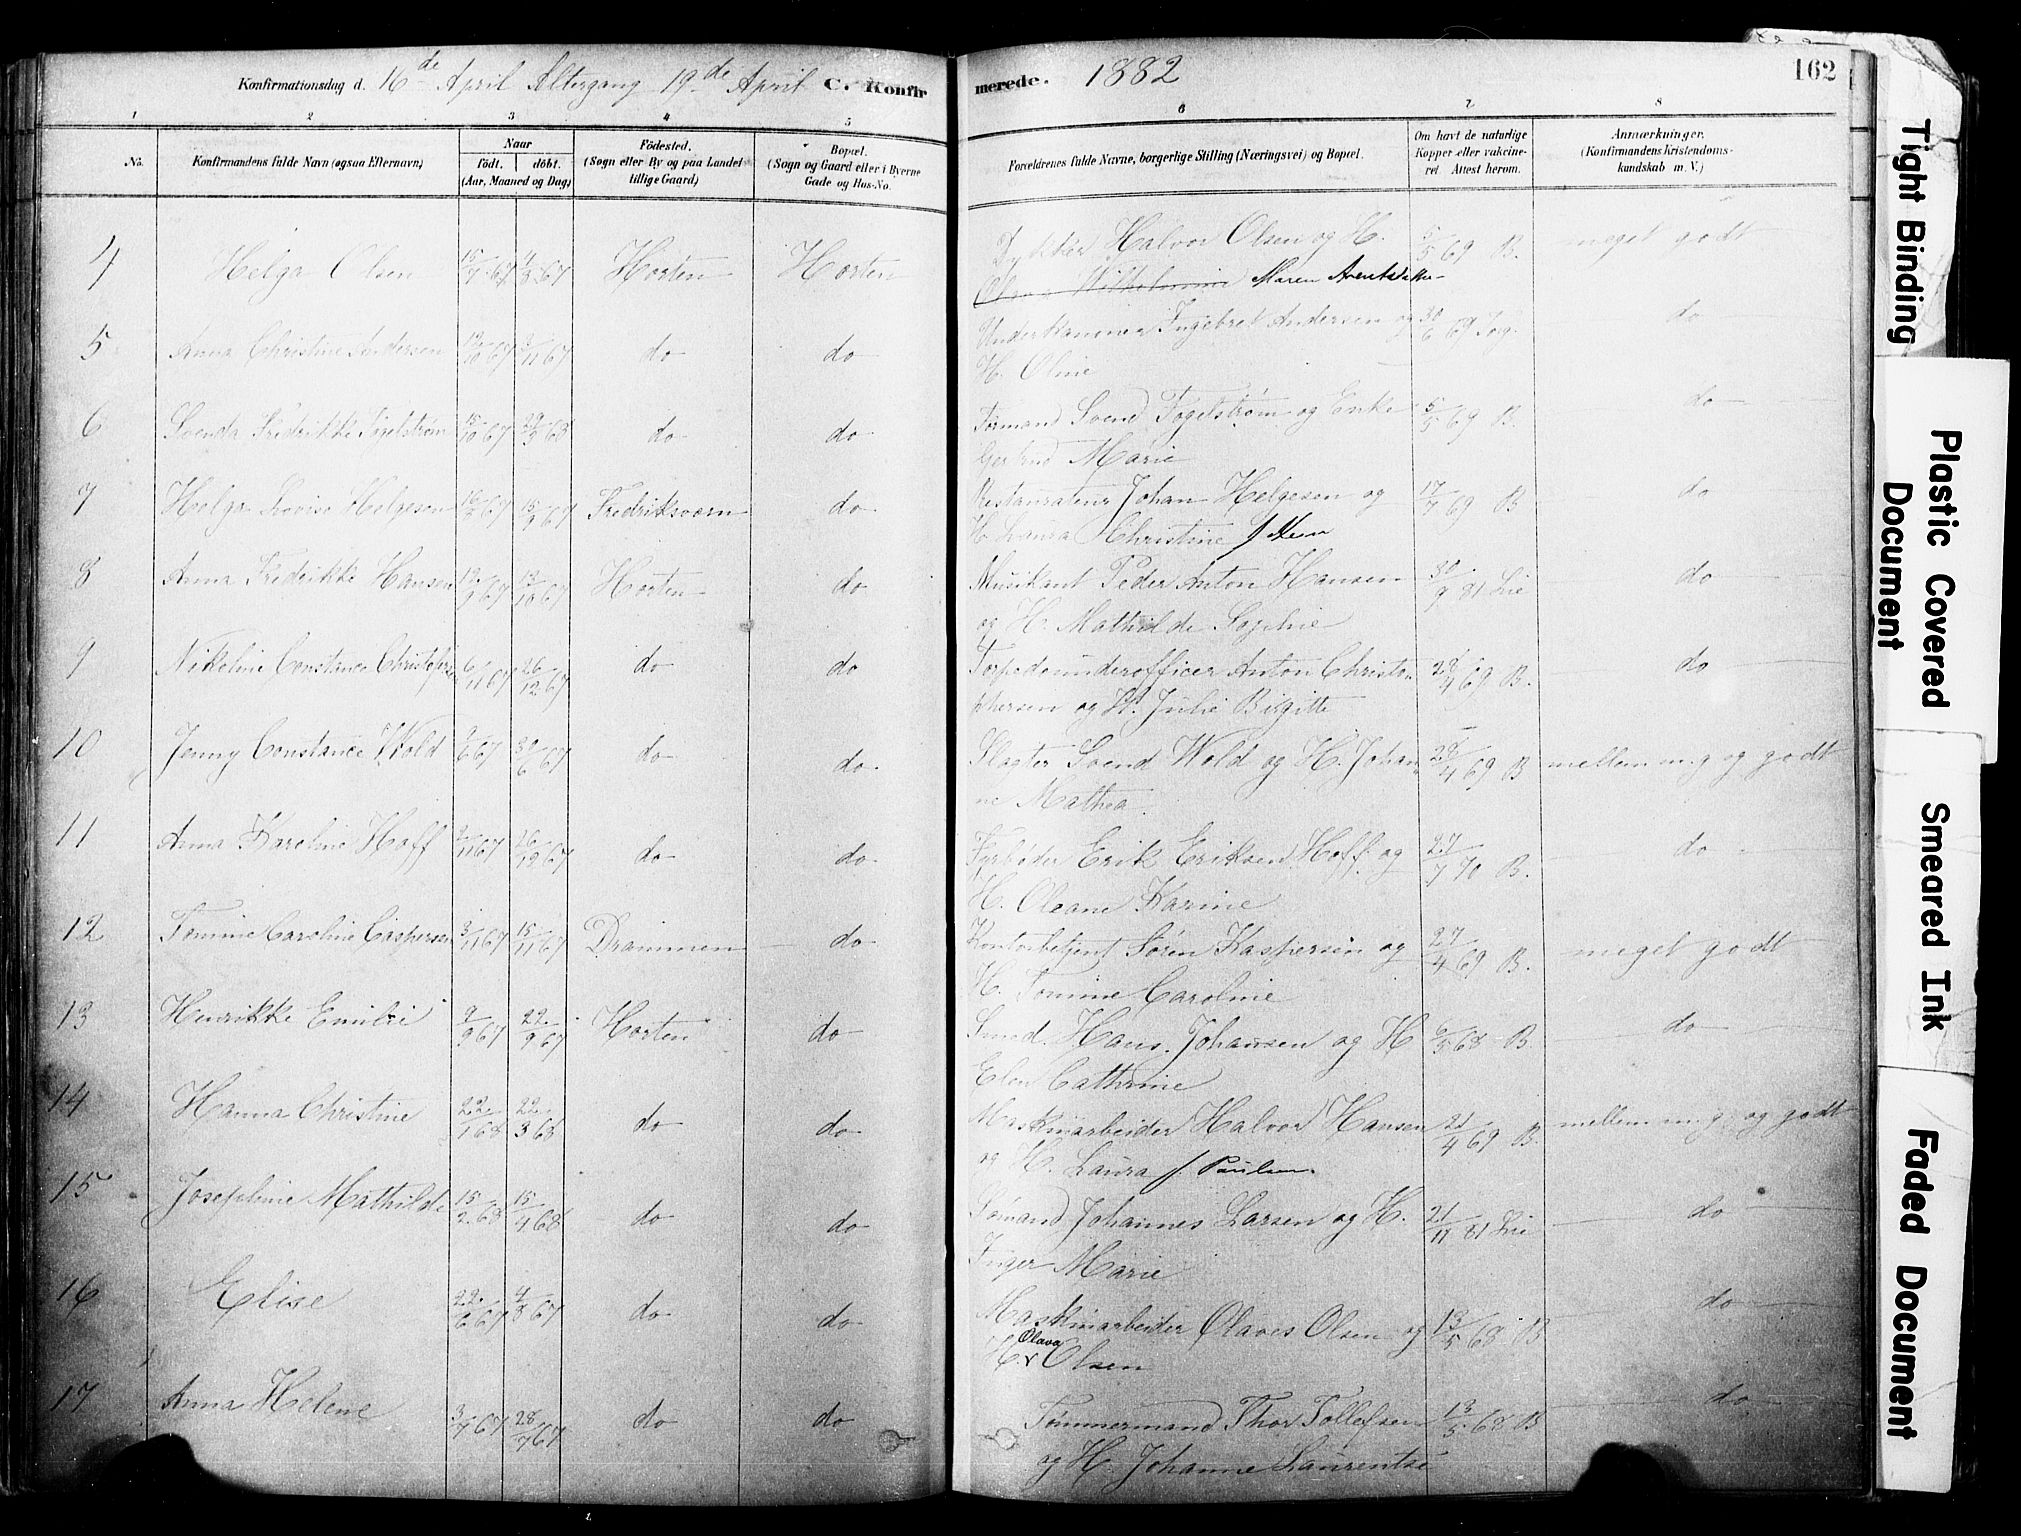 Konfirmationsdag d. 16de April Altergang 19de April C. Konfirmerede. 1882 162
1 2 3 4 5 6 7 8
No. Konfirmandens fulde Navn (ogsaa Efternavn) Naar født. døbt. (Aar, Maaned og Dag) Fødested. (Sogn eller By og paa Landet tillige Gaard) Bopæl. (Sogn og Gaard eller i Byerne Gade og Hus-No. Forældrenes fulde Navne, borgerlige Stilling (Næringsvei) og Bopæl. Om havt de naturlige Kopper eller vakcineret. Attest herom. Anmærkninger. (Konfirmandens Kristendomskundskab m. V.)
4 Helga Olsen 15/7 67 Horten Horten Halvor Olsen og H. 5/5 69 B. meget godt
Maren
5 Anna Christine Andersen 12/10 67 3/11 67 do do Underkanoner Ingebret Andersen og 30/6 69 do
H. Oline
6 Svenda Fredrikke Fogelstrøm 15/10 67 29/3 68 do do Tømand Svend Fogelstrøm og Enke 5/5 69 B. do
Marie
7 Helga Lovise Helgesen 67 15/9 67 Fredriksværn do Restauratør Johan Helgesen og 17/7 69 B do
H. Laura Christine
8 Anna Fredrikke Hansen 12/9 67 13/10 67 Horten do Musikant Peder Anton Hansen 30/9 81 Lie do
og H. Mathilde Sophie
9 Nikoline Constance Christophersen 6/11 67 26/12 67 do do Torpedounderofficer Anton Christo- 28/4 69 B. do
phersen og H. Julie Birgitte
10 Jenny Constance Wold 2/6 67 30/6 67 do do Slagter Svend Wold og H. Johan- 28/4 69 B mellem m.g. og godt
ne Mathea
11 Anna Karoline Hoff 2/11 67 26/12 67 do do Fyrbøder Erik Eriksen Hoff og 27/7 70 B. do
H. Oleane Karine
12 Tomine Caroline Caspersen 3/11 67 15/11 67 Drammen do Kontorbetjent Søren Kaspersen og 27/4 69 B. meget godt
H. Tomine Caroline
13 Henrikke Emilie 2/9 67 22/9 67 Horten do Smed Hans Johansen og H 6/5 68 B do
Elen Cathrine
14 Hanna Christine 22/1 68 22/3 68 do do Maskinarbeider Halvor Hansen 21/4 69 B. mellem m.g. og godt
og H. Laura f. Paulsen
15 Josephine Mathilde 15/2 68 15/4 68 do do Sømand Johannes Larsen og H. 21/11 81 Lie do
Inger Marie
16 Elise 22/6 67 4/8 67 do do Maskinarbeider Olaves Olsen og 13/5 68 B do
H. Olava Olsen
17 Anna Helene 3/7 67 28/7 67 do do Tømmermand Thor Tollefsen 13/5 68 B do
og H. Johanne Laurentse
Tight Binding
Plastic Covered Document
Smeared Ink
Faded Document